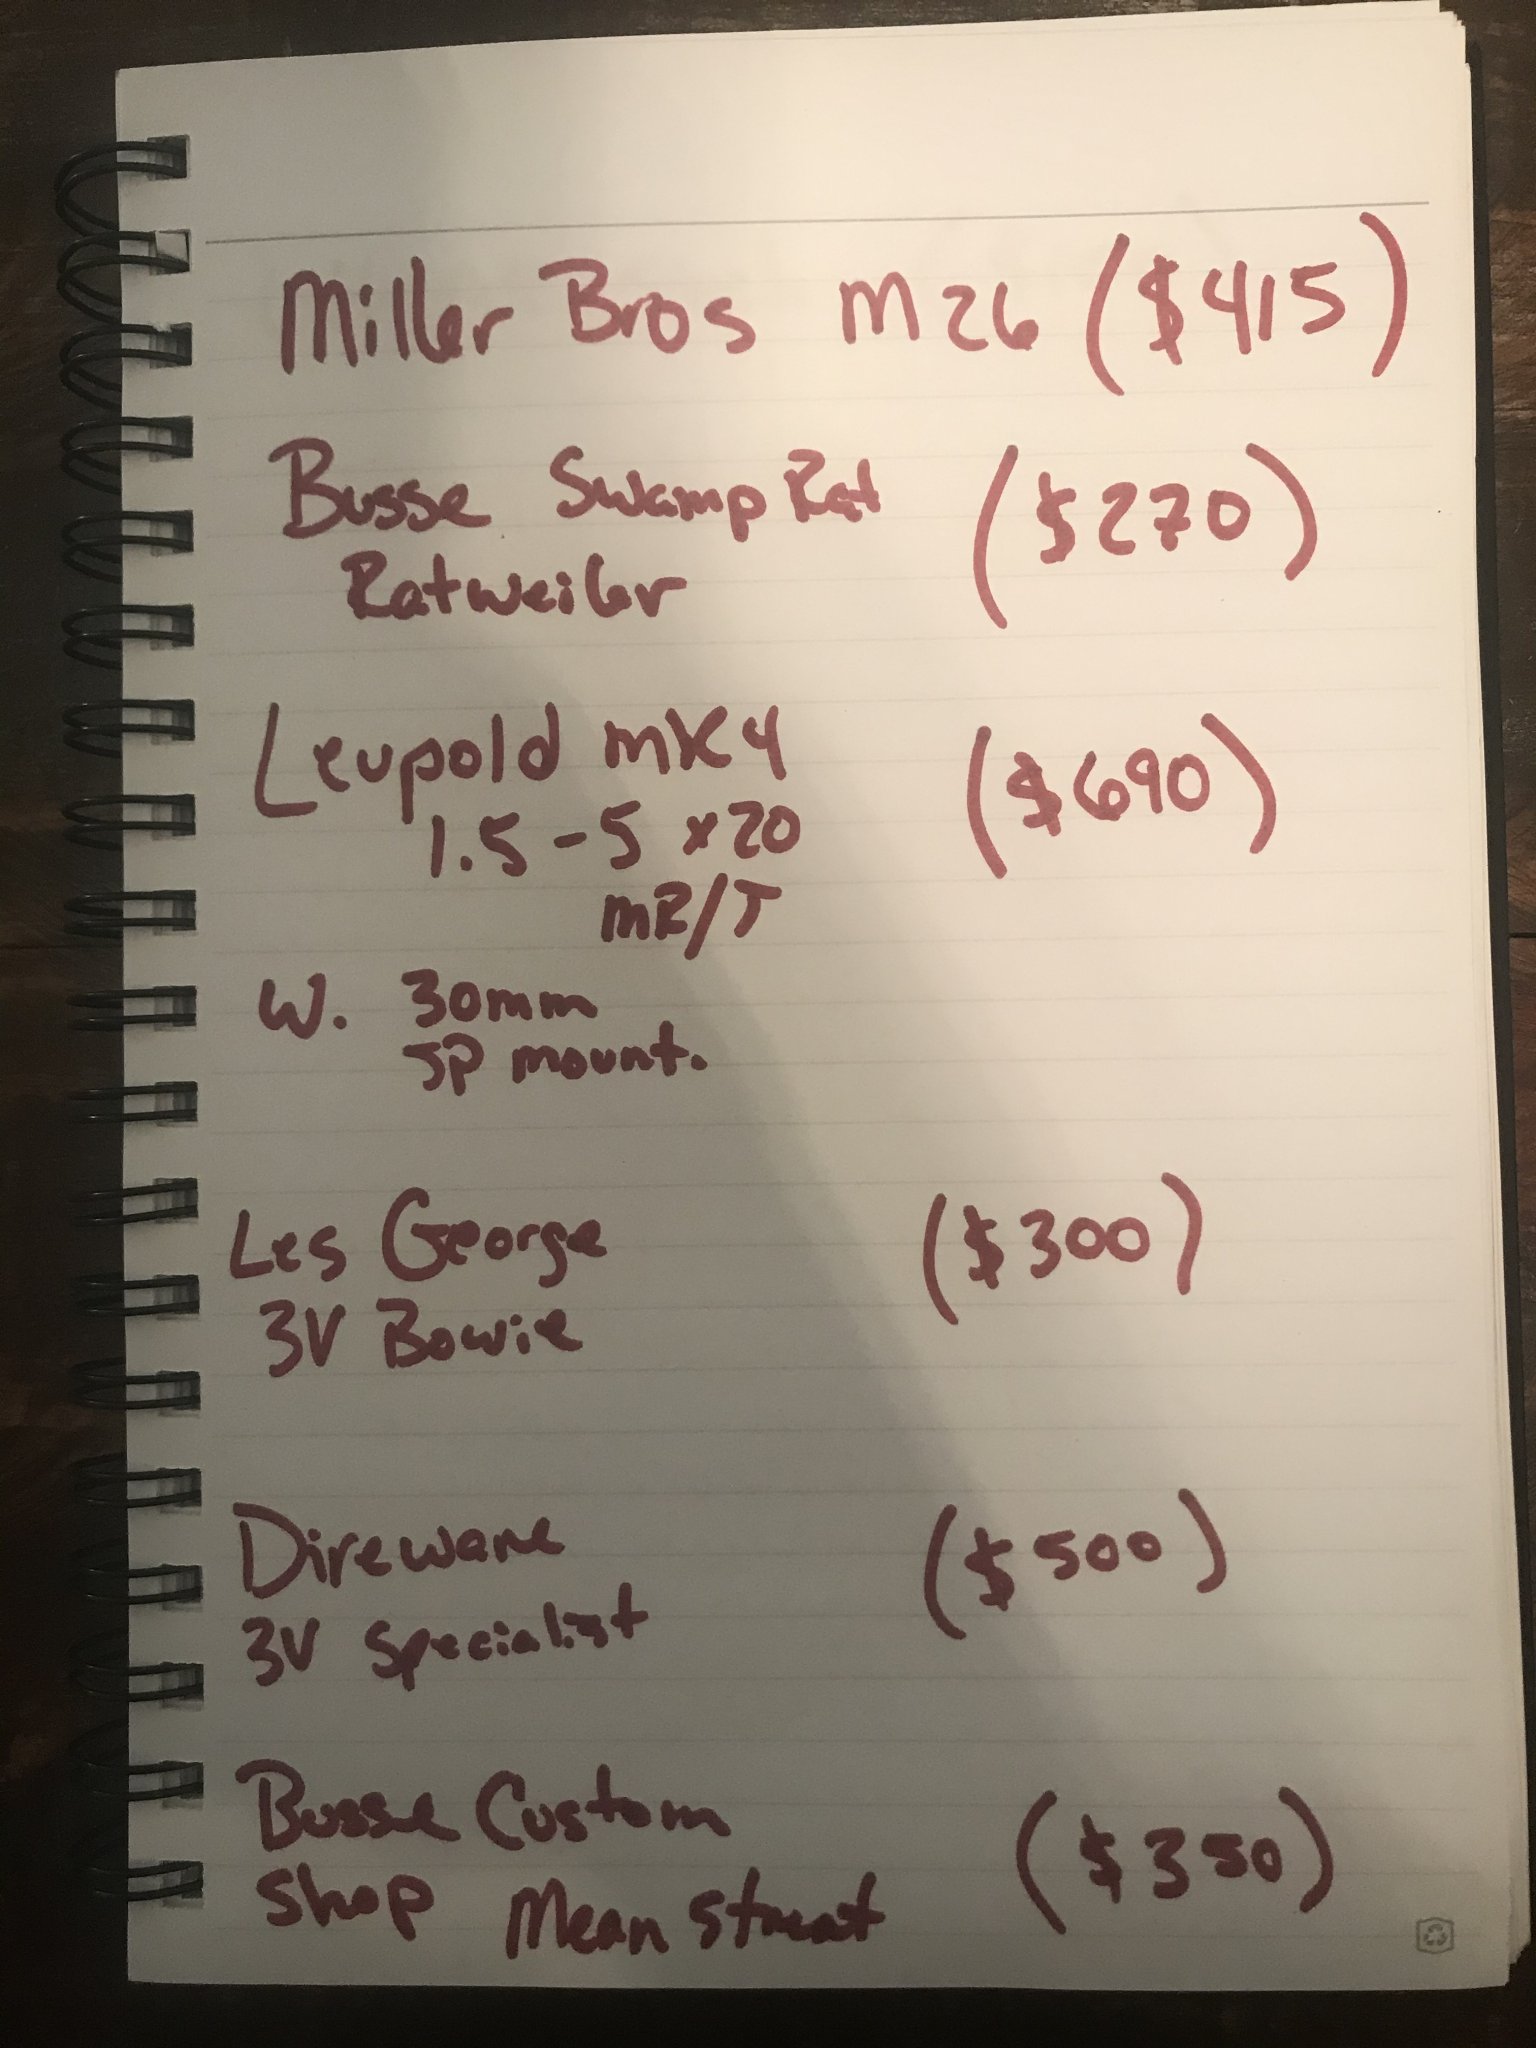 Miller Bros M26 ($415)
Busse Swamp Rat ($270)
Ratweiler
Leupold MK4 ($690)
1.5-5 x20
MR/T
W. 30mm
JP mount.
Les George ($300)
3V Bowie
Direware ($500)
3V Specialist
Busse Custom ($350)
Shop Mean Street